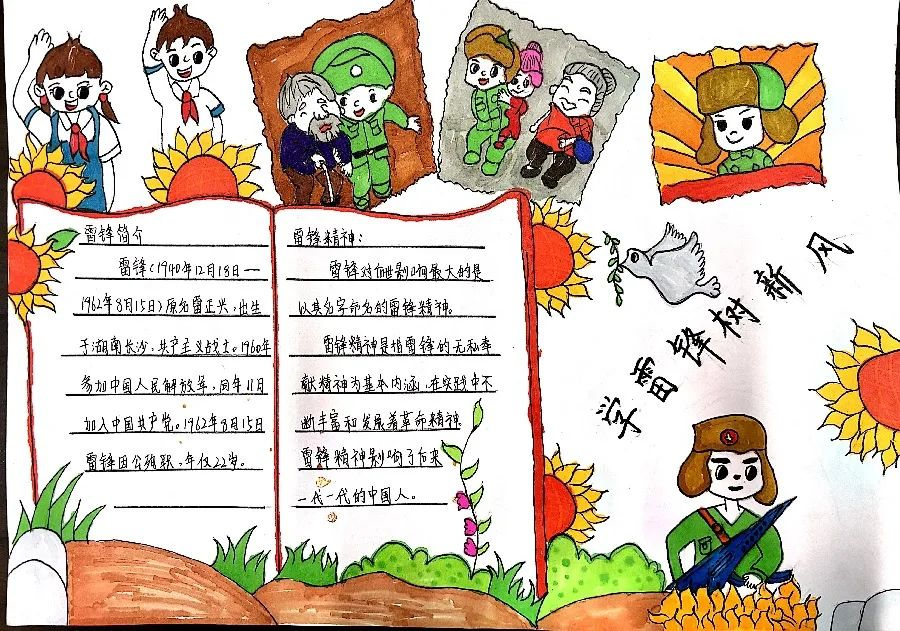 雷锋简介
雷锋(1940年12月18日—
1962年8月15日)原名雷正兴,出生
于湖南长沙,共产主义战士。1960年
参加中国人民解放军,同年11月
加入中国共产党。1962年8月15日
雷锋因公殉职,年仅22岁。
雷锋精神:
雷锋对世影响最大的是
以其名字命名的雷锋精神。
雷锋精神是指雷锋的无私奉
献精神为基本内涵,在实践中不
断丰富和发展着革命精神
雷锋精神影响了后来
一代一代的中国人。
学雷锋树新风